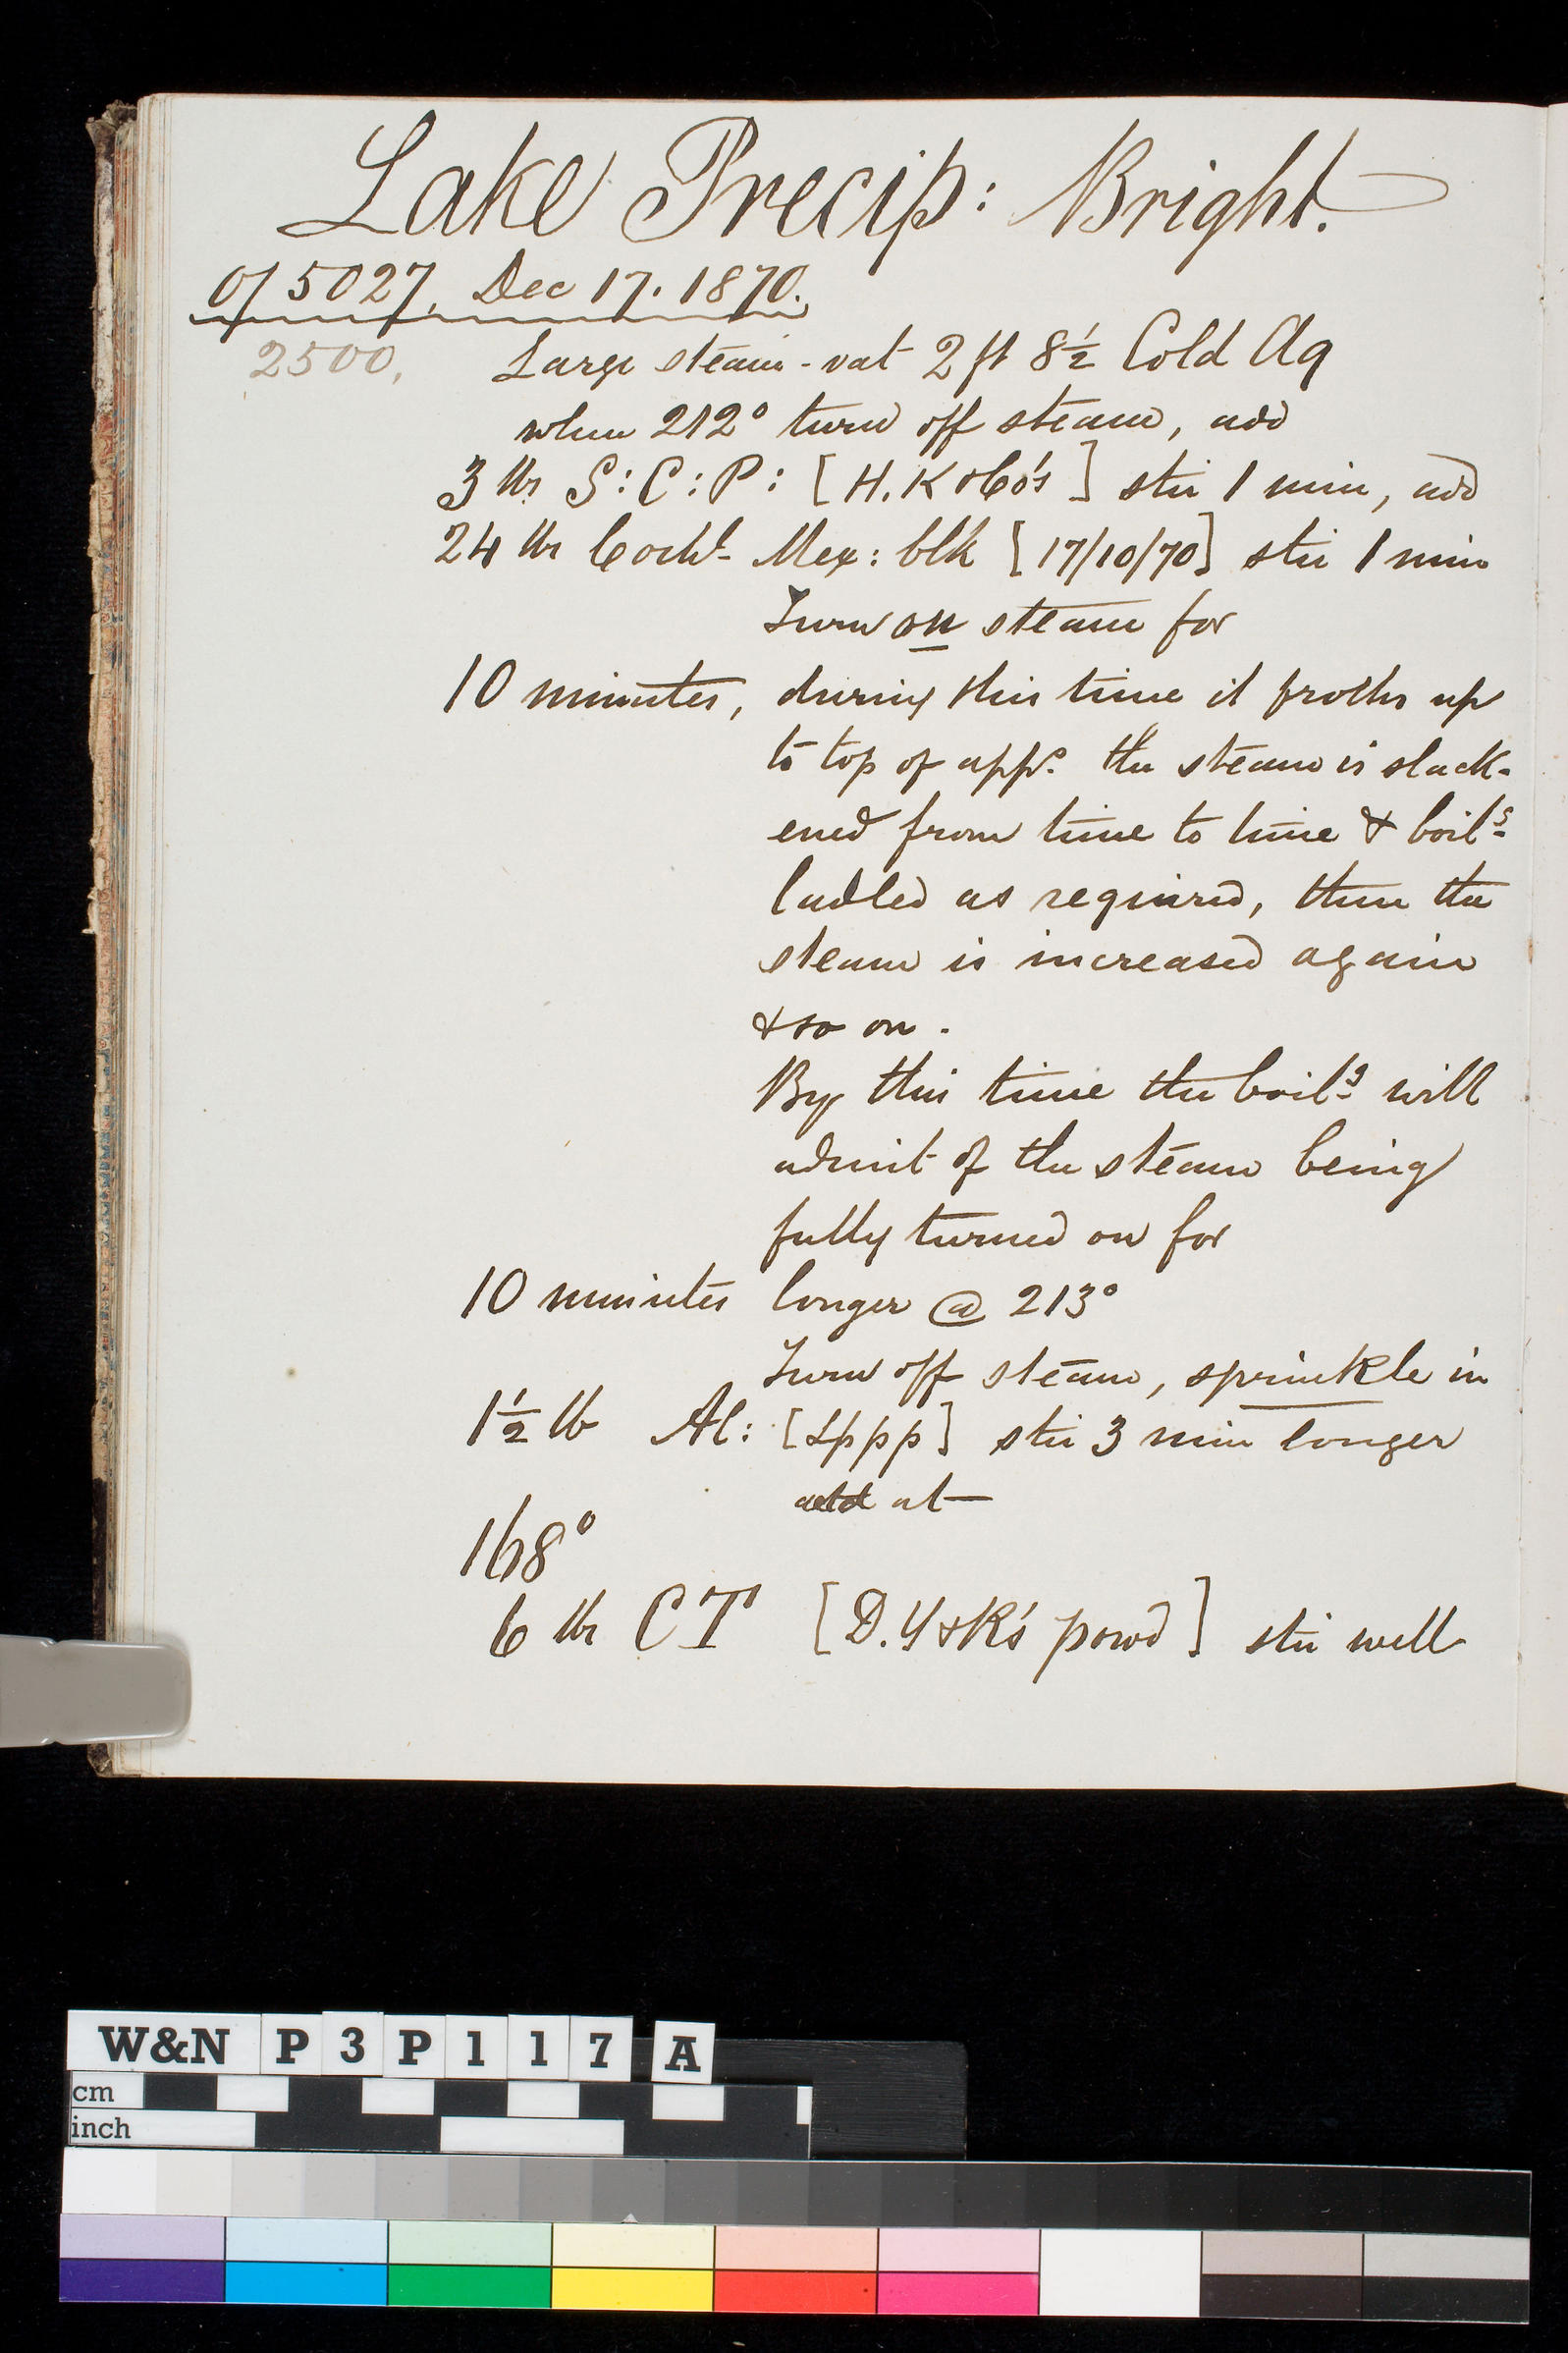 Lake Precip: Bright.
O/ 5027, Dec 17. 1870.
2500, Large steam-vat 2 ft 8½ Cold Aq
when 212° turn off steam, add
3 lbs S:C:P: [H.K &Co's] stir 1 min, add
24 lbs Cochl Mex: blk [17/10/70] stir 1 min
Turn on steam for
10 minutes, during this time it froths up
to top of apps. the steam is slack-
ened from time to time & boilg
ladled as required, then the
steam is increased again
& so on.
By this time the boilg will
admit of the steam being
fully turned on for
10 minutes longer @ 213°
Turn off steam, sprinkle in
1½ lb Al: [Lppp] stir 3 min longer
add at
168°
6 lbs CT [D.Y&R's powd] stir well
W&N P3P117 A
cm
inch